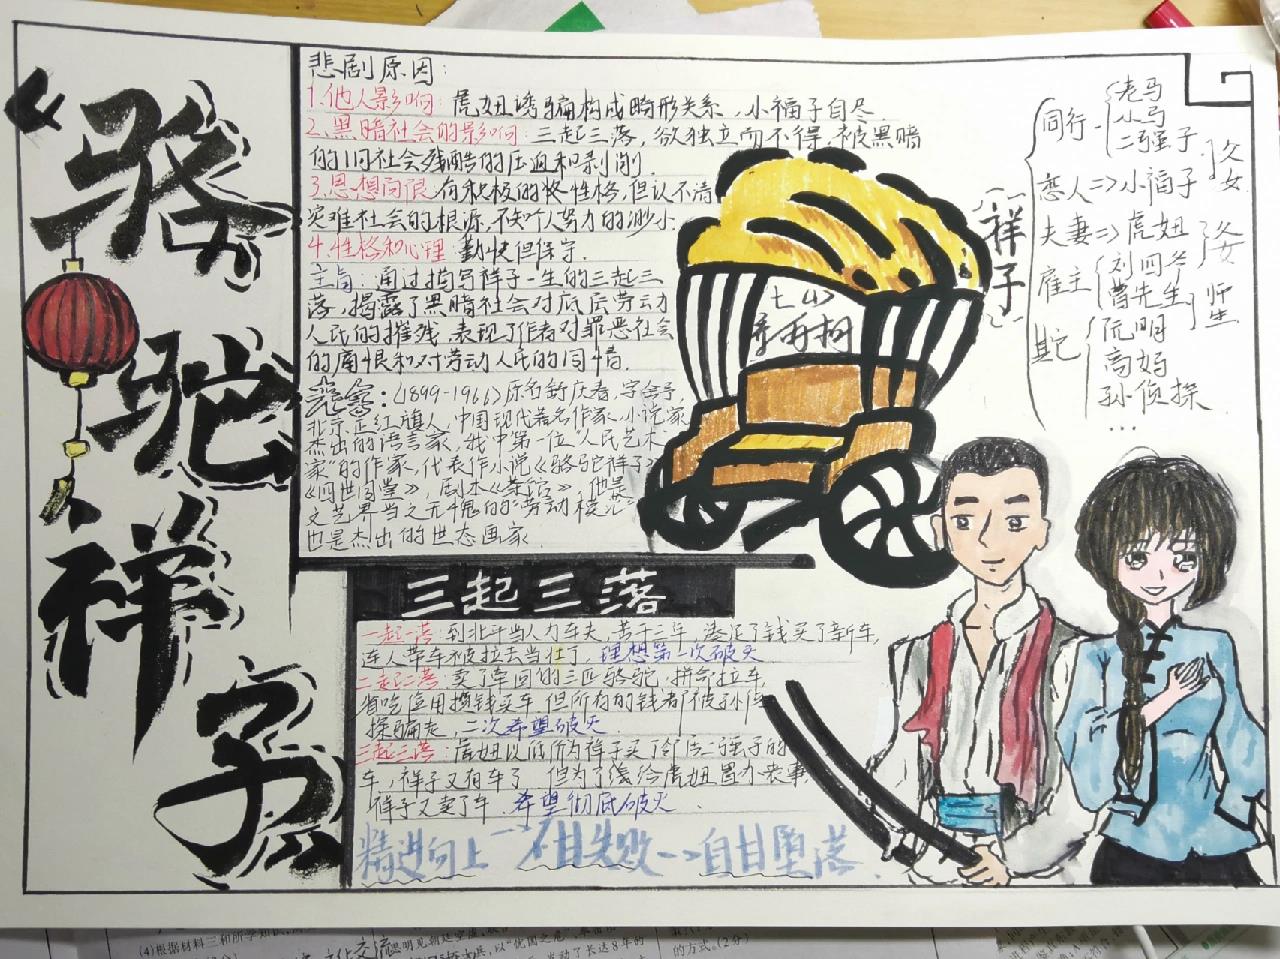 “骆驼祥子”
悲剧原因：
1.他人影响：虎妞诱骗构成畸形关系，小福子自尽.
2.黑暗社会的影响：三起三落，欲独立而不得，被黑暗
的旧社会残酷的压迫和剥削.
3.思想局限 有积极的性格，但认不清
灾难社会的根源，不知个人努力的渺小.
4.性格和心理 勤快但保守.
主旨：通过描写祥子一生的三起三
落，揭露了黑暗社会对底层劳动
人民的摧残，表现了作者对罪恶社会
的痛恨和对劳动人民的同情.
老舍：(1899-1966)原名舒庆春，字舍予，
北京正红旗人，中国现代著名作家，小说家
杰出的语言家，我中第一位“人民艺术
家”的作家，代表作小说《骆驼祥子》
《四世同堂》，剧本《茶馆》，他是
文艺界当之无愧的“劳动模范”
也是杰出的世态画家.
七(4)
“祥子”
同行-
老马
小马
二强子
父女
恋人=>小福子
夫妻=>虎妞
父女
雇主
刘四爷
曹先生
师生
其它
阮明
高妈
孙侦探
…
三起三落
一起一落：到北平当人力车夫，苦干三年，凑足了钱买了新车，
连人带车被拉去当壮丁，理想第一次破灭
二起二落：卖了牵回的三匹骆驼，拼命拉车，
省吃俭用攒钱买车 但所有的钱都被孙侦
探骗走，二次希望破灭.
三起三落：虎妞以低价为祥子买了邻居二强子的
车，祥子又有车了 但为了钱给虎妞置办丧事，
祥子又卖了车.希望彻底破灭.
精进向上-->不甘失败-->自甘堕落.
(4)根据材料三和所学知识，
的方式。(2分)